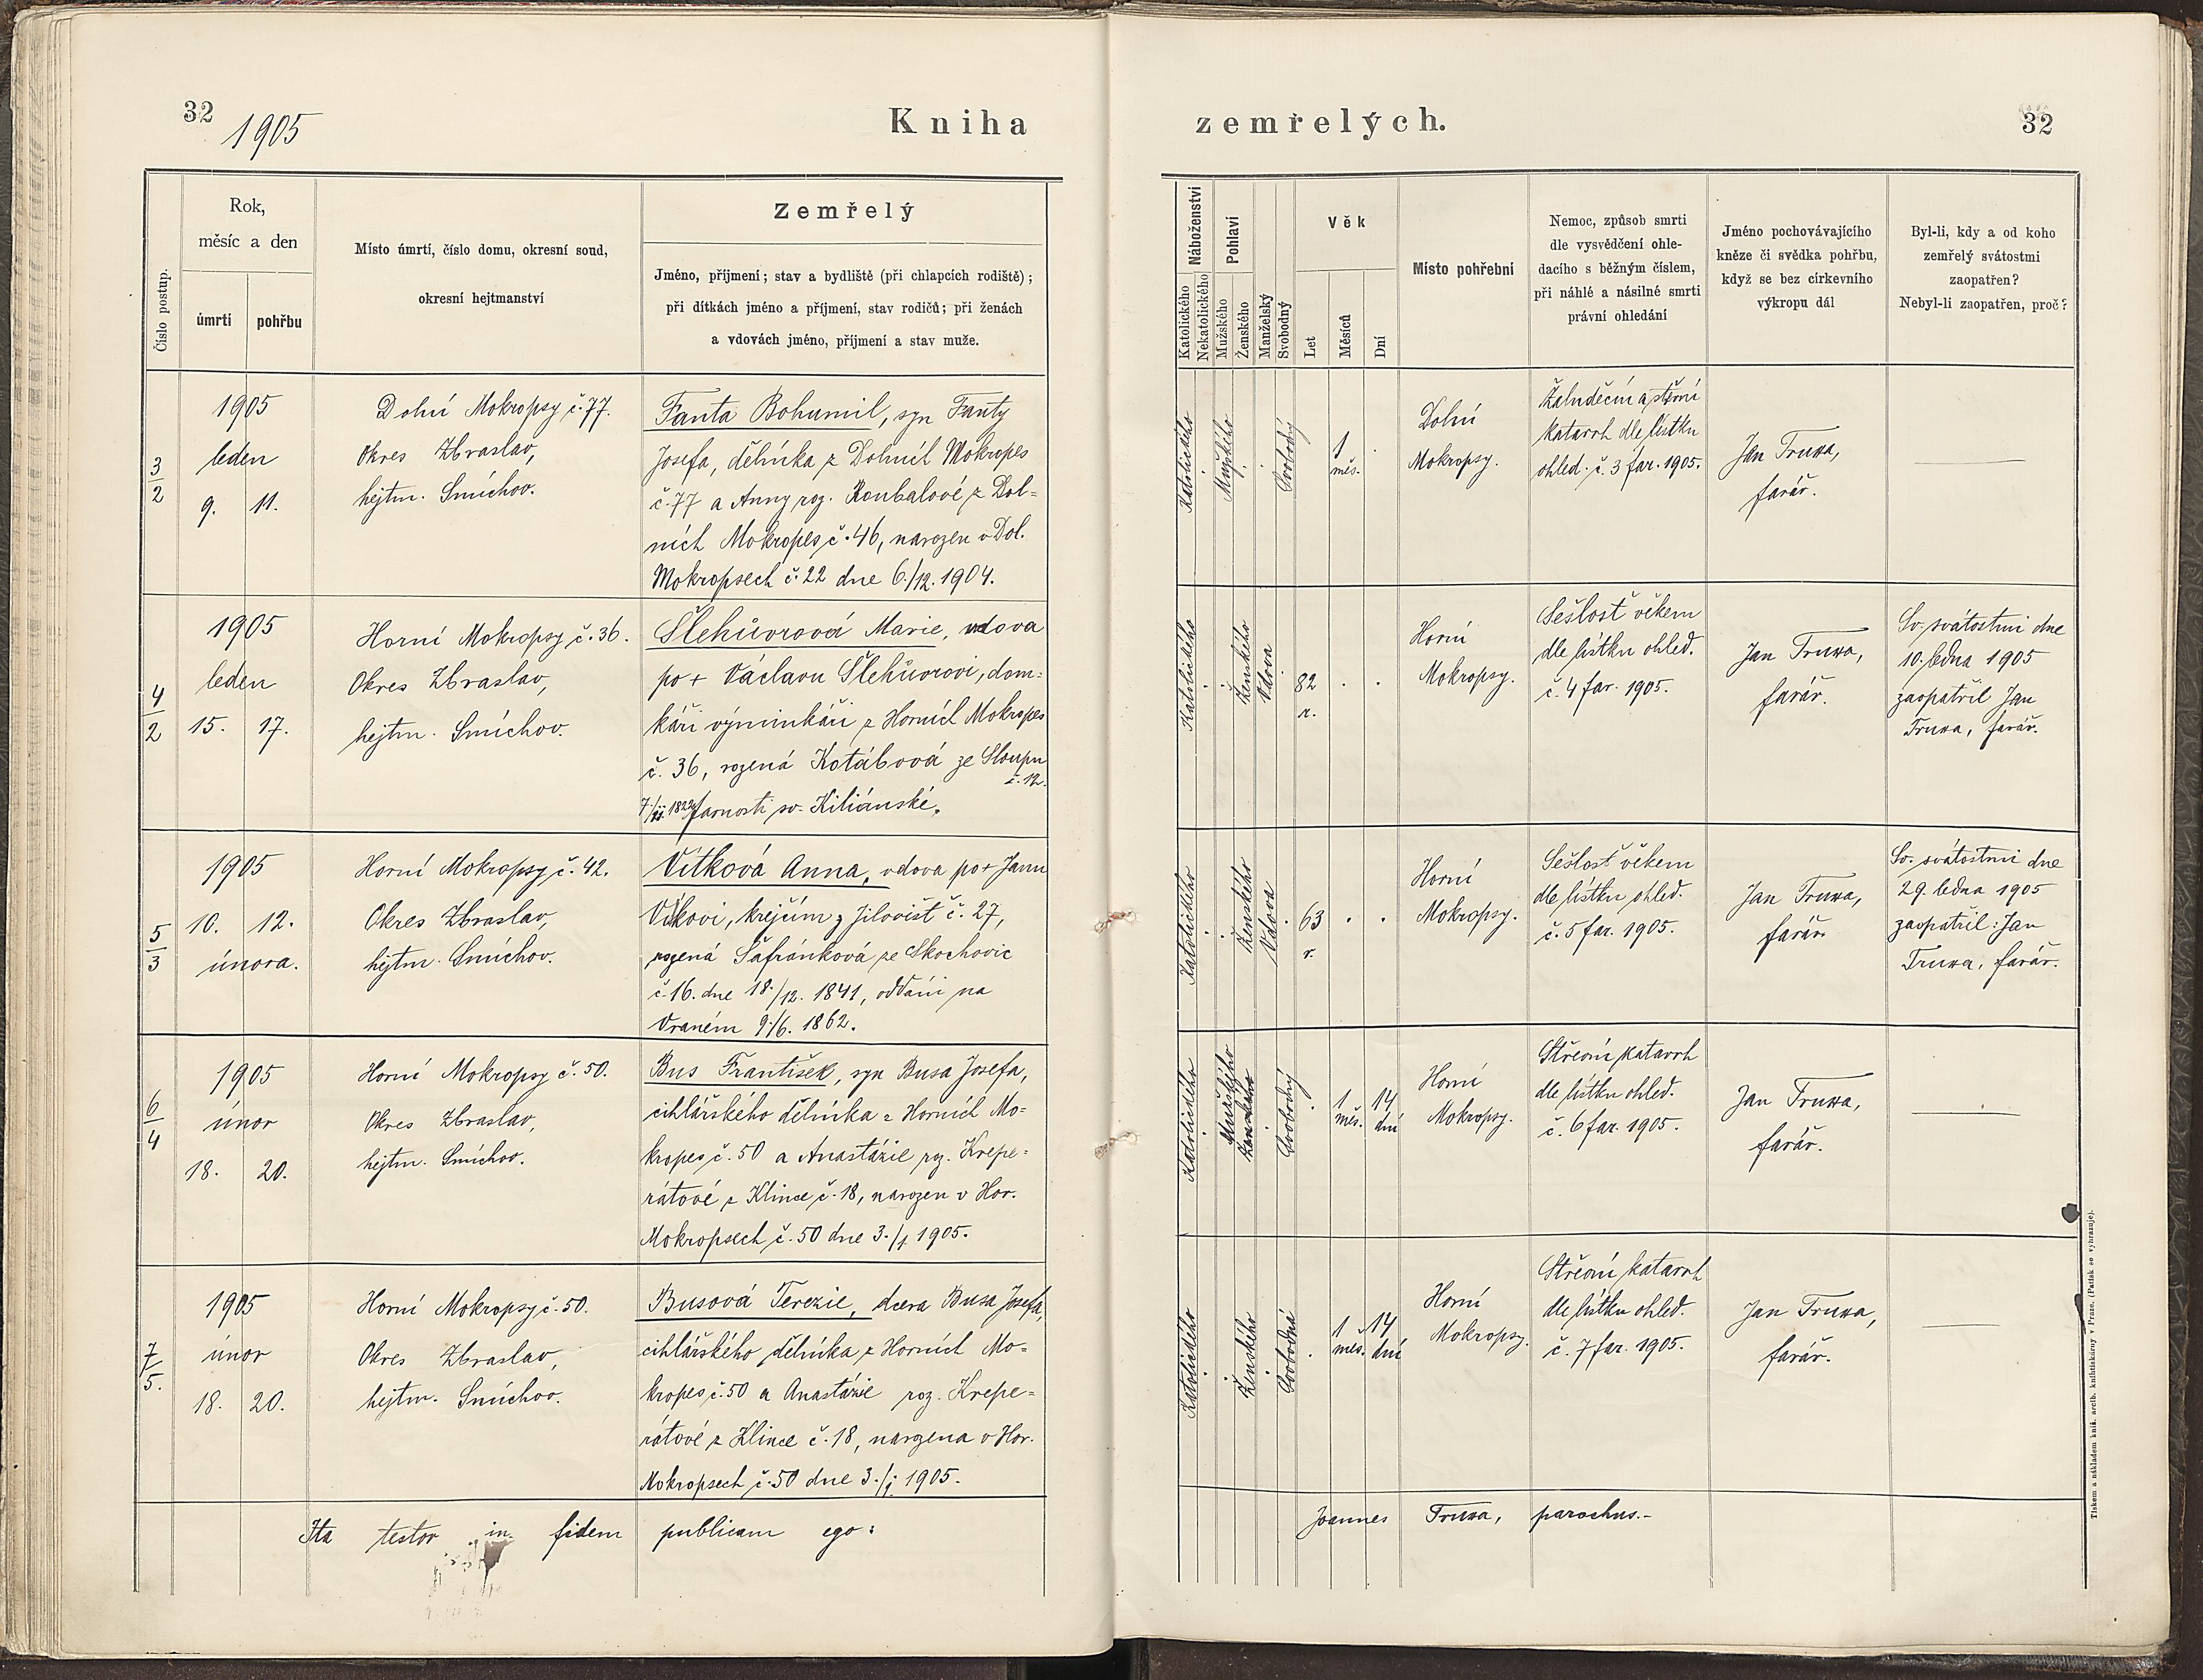 32
1905
Kniha
zemřelých.
32
Číslo postup.
Rok,
měsíc a den
úmrtí
pohřbu
Místo úmrtí, číslo domu, okresní soud,
okresní hejtmanství
Zemřelý
Jméno, příjmení; stav a bydliště (při chlapcích rodiště);
při dítkách jméno a příjmení, stav rodičů; při ženách
a vdovách jméno, příjmení a stav muže.
Náboženství
Katolického
Nekatolického
Pohlaví
Mužského
Ženského
Manželský
Svobodný
Věk
Let
Měsíců
Dní
Místo pohřební
Nemoc, způsob smrti
dle vysvědčení ohle-
dacího s běžným číslem,
při náhlé a násilné smrti
právní ohledání
Jméno pochovávajícího
kněze či svědka pohřbu,
když se bez církevního
výkropu dál
Byl-li, kdy a od koho
zemřelý svátostmi
zaopatřen?
Nebyl-li zaopatřen, proč?
3/2
1905
leden
9. 11.
Dolní Mokropsy č. 77.
Okres Zbraslav,
hejtm. Smíchov.
Fanta Bohumil, syn Fanty
Josefa, dělníka z Dolních Mokropes
č. 77 a Anny roz. Koubalové z Dol-
ních Mokropes č. 46, narozen v Dol.
Mokropsech č. 22 dne 6./12. 1904.
Katolického
Mužského
Svobodný
1
měs.
Dolní
Mokropsy.
Žaludeční a střevní
katarrh dle lístku
ohled. č. 3 far. 1905.
Jan Truxa,
farář.
4/2
1905
leden
15. 17.
Horní Mokropsy č. 36.
Okres Zbraslav,
hejtm. Smíchov.
Šlehůvrová Marie, vdova
po + Václavu Šlehůvrovi, dom-
káři výminkáři z Horních Mokropes
č. 36, rozená Kotábová ze Sloupu
č. 12.
7./11. 1822 farnosti sv. Kiliánské.
Katolického
Ženského
Vdova
82
r.
Horní
Mokropsy.
Sešlosť věkem
dle lístku ohled.
č. 4 far. 1905.
Jan Truxa,
farář.
Sv. svátostmi dne
10. ledna 1905
zaopatřil Jan
Truxa, farář.
5/3
1905
10. 12.
února.
Horní Mokropsy č. 42.
Okres Zbraslav,
hejtm. Smíchov.
Vítková Anna, vdova po + Janu
Vítkovi, krejčím z Jílovišť č. 27,
rozená Šafránková ze Skochovic
č. 16. dne 18./12. 1841, oddáni na
Vraném 9./6. 1862.
Katolického
Ženského
Vdova
63
r.
Horní
Mokropsy.
Sešlosť věkem
dle lístku ohled.
č. 5 far. 1905.
Jan Truxa,
farář
Sv. svátostmi dne
29. ledna 1905
zaopatřil: Jan
Truxa, farář.
6/4
1905
únor
18. 20.
Horní Mokropsy č. 50.
Okres Zbraslav,
hejtm. Smíchov.
Bus František, syn Busa Josefa,
cihlářského dělníka z Horních Mo-
kropes č. 50 a Anastázie roz. Krepe-
rátové z Klince č. 18, narozen v Hor.
Mokropsech č. 50 dne 3./1. 1905.
Katolického
Mužského
Ženského
Svobodný
1
měs.
14
dní
Horní
Mokropsy.
Střevní katarrh
dle lístku ohled.
č. 6 far. 1905.
Jan Truxa,
farář.
7/5.
1905
únor
18. 20.
Horní Mokropsy č. 50.
Okres Zbraslav,
hejtm. Smíchov.
Busová Terezie, dcera Busa Josefa,
cihlářského dělníka z Horních Mo-
kropes č. 50 a Anastázie roz. Krepe-
rátové z Klince č. 18, narozena v Hor.
Mokropsech č. 50 dne 3./1. 1905.
Katolického
Ženského
Svobodná
1
měs.
14
dní
Horní
Mokropsy.
Střevní katarrh
dle lístku ohled.
č. 7 far. 1905.
Jan Truxa,
farář.
Ita testor in fidem publicam ego:
Joannes Truxa, parochus.-
Tiskem a nákladem kníž. arcib. knihtiskárny v Praze. (Patisk se vyhrazuje).